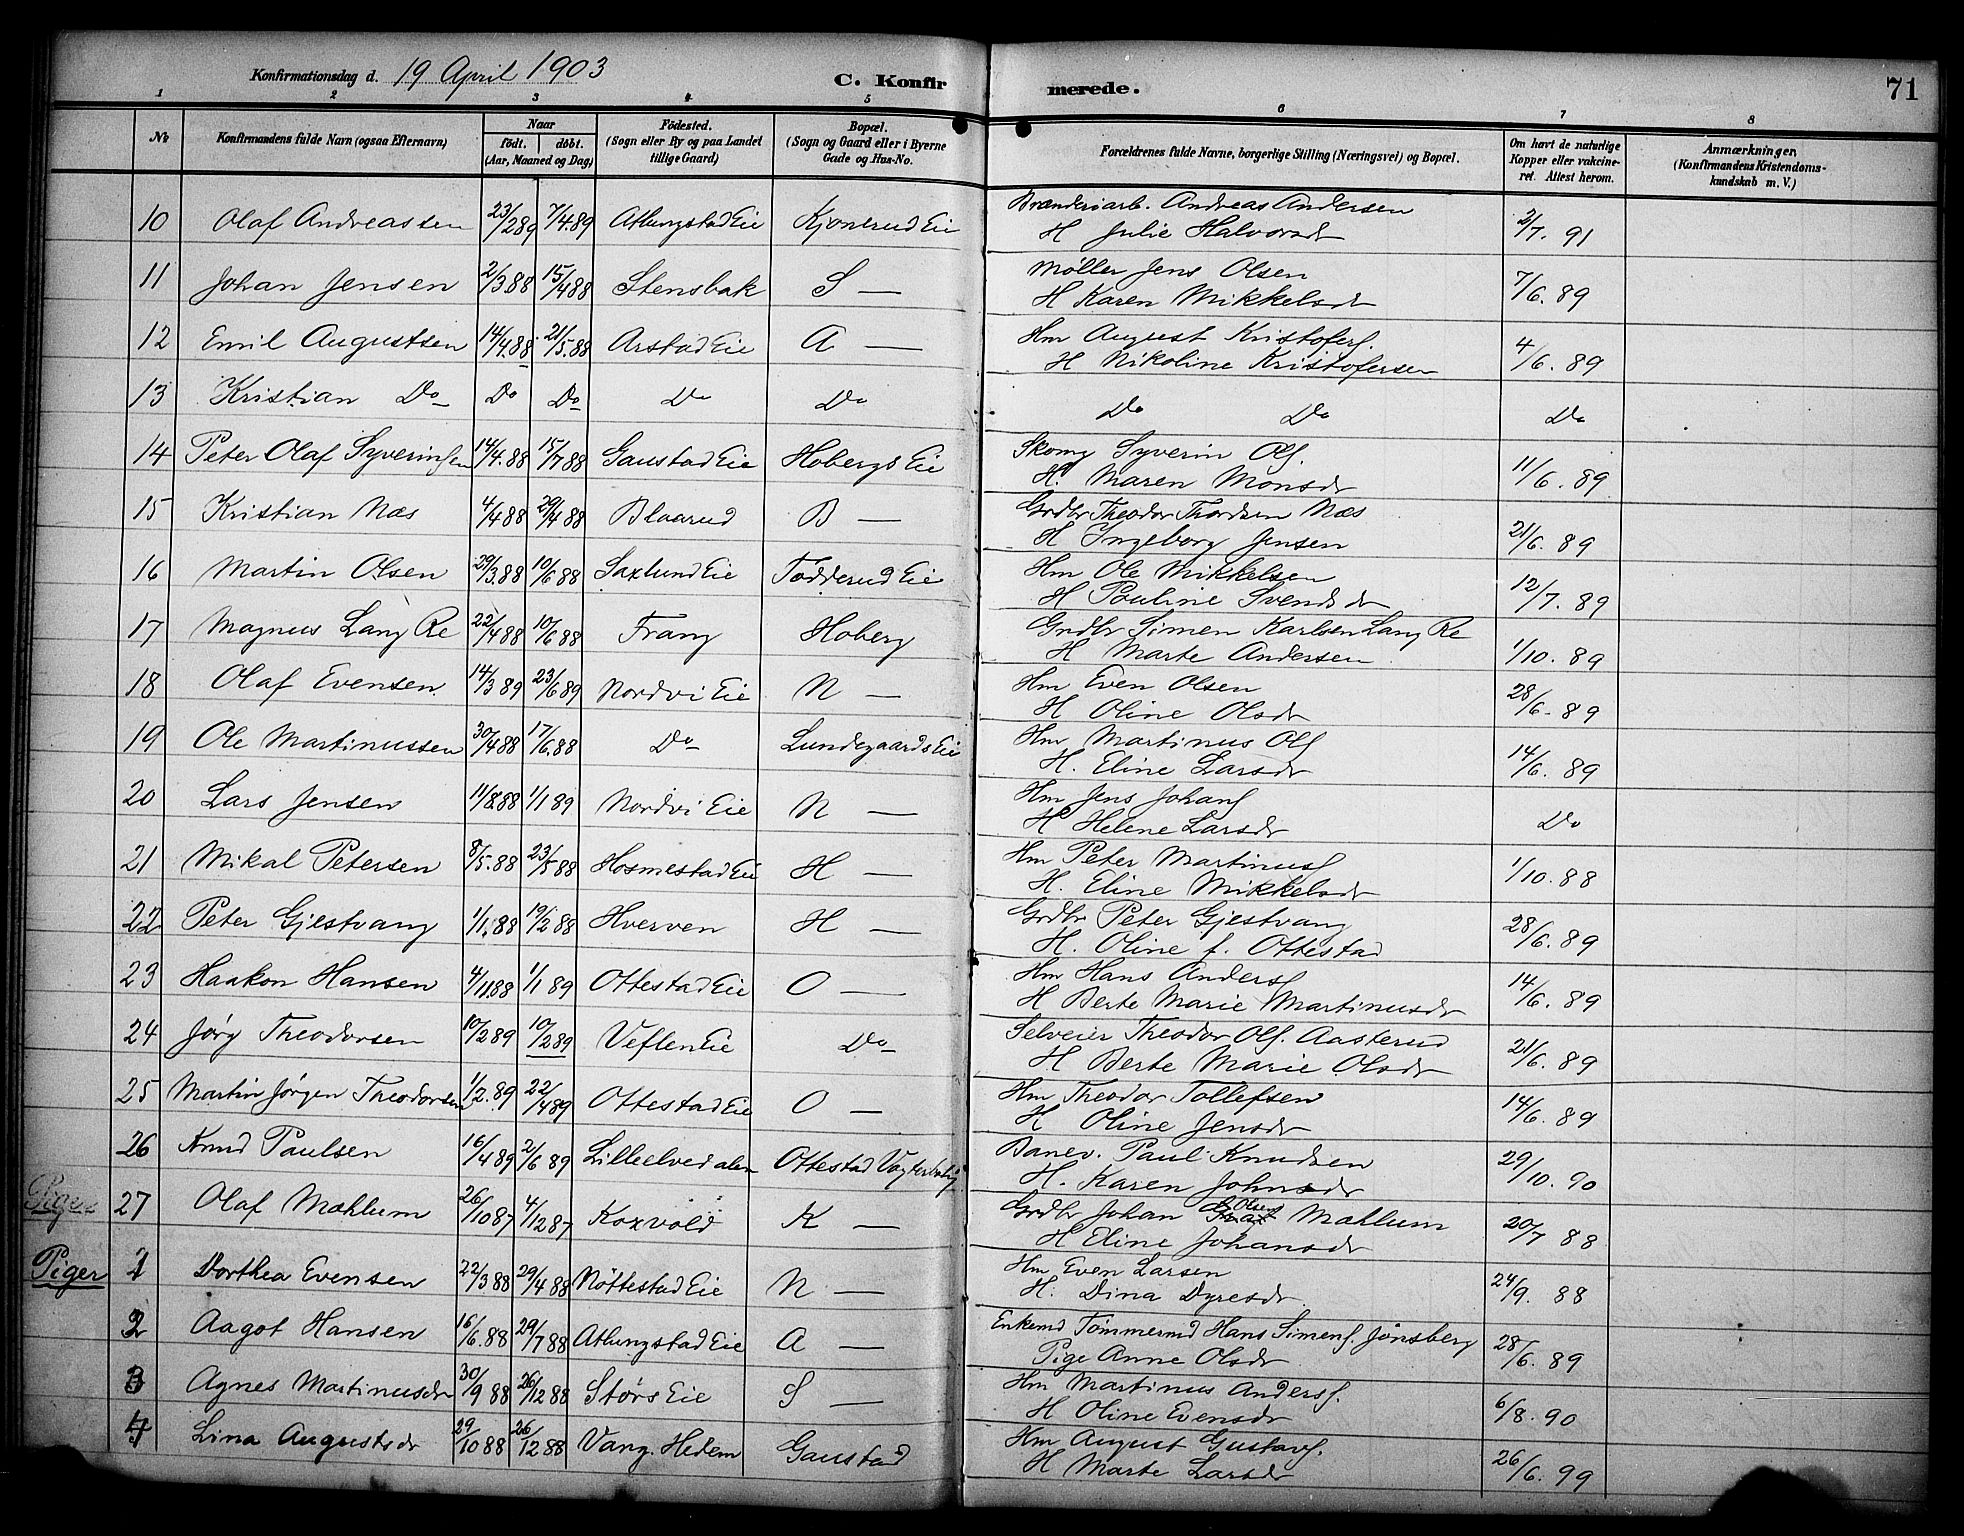 Konfirmationsdag d. 19 April 1903
C. Konfirmerede.
71
1 2 3 4 5 6 7 8
No
Konfirmandens fulde Navn (ogsaa Efternavn)
Naar
født. døbt.
(Aar, Maaned og Dag)
Fødested.
(Sogn eller By og paa Landet
tillige Gaard)
Bopæl.
(Sogn og Gaard eller i Byerne
Gade og Hus-No.
Forældrenes fulde Navne, borgerlige Stilling (Næringsvei) og Bopæl.
Om havt de naturlige
Kopper eller vakcine-
ret. Attest herom.
Anmærkninger
(Konfirmandens Kristendoms-
kundskab m. V.)
10 Olaf Andreassen 23/2 89 7/4.89 Athungstad Eie Kjonerud Eie Brænderiarb. Andreas Andersen
H Julie Halvorsdr 2/7. 91
11 Johan Jensen 2/3.88 15/4 88 Stensbak S — Møller Jens Olsen
H Karen Mikkelsdr 7/6. 89
12 Emil Augustsen 14/4.88 21/5.88 Arstad Eie A — Hm August Kristofers.
H Nikoline Kristofersen 4/6. 89
13 Kristian Do Do Do Do Do Do Do Do
14 Peter Olaf Syverinsen 14/4.88 15/7 88 Gaustad Eie Hobergs Eie Skomg Syverin Ols.
H. Maren Monsdr 11/6. 89
15 Kristian Næs 4/4 88 29/4 88 Blaarud B — Grdbr Theodor Thordsen Næs
H Ingeborg Jensen 21/6. 89
16 Martin Olsen 29/3.88 10/6 88 Saxlund Eie Tødderud Eie Hm Ole Mikkelsen
H Pauline Svendsdr 12/7. 89
17 Magnus Lang Re 22/4 88 10/6 88 Frang Hoberg Grdbr Simen Karlsen Lang Re
H Marte Andersen 1/10. 89
18 Olaf Evensen 14/3 89 23/6 89 Nordvi Eie N — Hm Even Olsen
H Oline Olsdr 28/6. 89
19 Ole Martinussen 30/4 88 17/6.88 Do Lundegaards Eie Hm Martinus Ols
H. Eline Larsdr 14/6. 89
20 Lars Jensen 11/8.88 1/1 89 Nordvi Eie N — Hm Jens Johans
H Helene Larsdr Do
21 Mikal Petersen 8/5.88 23/5 88 Hosmestad Eie H — Hm Peter Martinus
H. Eline Mikkelsdr 1/10. 88
22 Peter Gjestvang 1/1.88 19/2 88 Hverven H — Grdbr Peter Gjestvang
H. Oline f. Ottestad 28/6. 89
23 Haakon Hansen 4/11.88 1/1 89 Ottestad Eie O — Hm Hans Anders
H Berte Marie Martinusdr 14/6. 89
24 Jørg Theodorsen 10/2 89 10/2 89 Veflen Eie Do Selveier Theodor Ols. Aasterud
H Berte Marie Olsdr 21/6. 89
25 Martin Jørgen Theodorsen 1/2.89 22/4 89 Ottestad Eie O — Hm Theodor Tollefsen
H Oline Jensdr 14/6. 89
26 Knud Paulsen 16/4 89 2/6 89 Lilleelvedalen Ottestad Vogterbolig Banev. Paul Knudsen
H. Karen Johnsdr 29/10. 90
Piger
27 Olaf Mæhlum 26/10 87 4/12 87 Koxvold K — Grdbr Johan Olsen Mæhlum
H Eline Johansdr 20/7 88
Piger
1 Dorthea Evensen 22/3 88 29/4 88 Nøttestad Eie N — Hm Even Larsen
H. Dina Dyresdr 24/9. 88
2 Aagot Hansen 16/6.88 29/7 88 Athungstad Eie A — Enkemd Tømmermd Hans Simens. Jønsberg
Pige Anne Olsdr 28/6. 89
3 Agnes Martinusdr 30/9 88 26/12 88 Størs Eie S — Hm Martinus Anders.
H Oline Evensdr 6/8. 90
4 Lina Augustsdr 29/10 88 26/12 88 Vang. Hedem Gaustad Hm August Gustavs.
H Marte Larsdr 26/6. 99